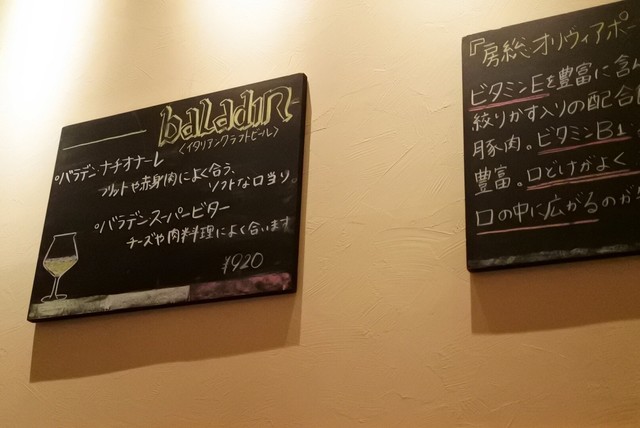 baladin
〈イタリアンクラフトビール〉
○バラデン・ナチオナーレ
フリットや赤身肉によく合う、
ソフトな口当り。
○バラデンスーパービター
チーズや肉料理によく合います
¥920
『房総オリヴィアポー
ビタミンEを豊富に含ん
絞りかす入りの配合
豚肉。ビタミンB1
豊富。口どけがよく
口の中に広がるのが